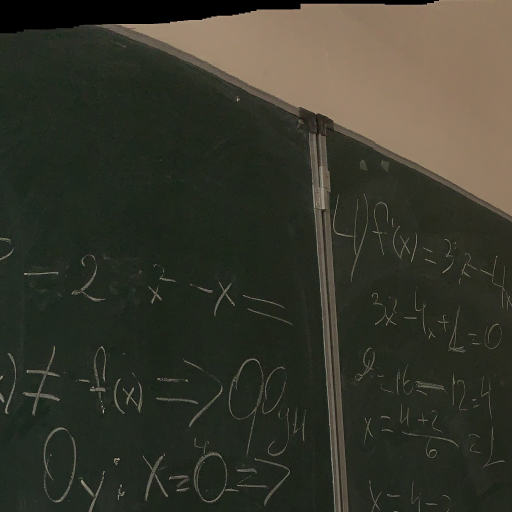 - 2x² - x =
) ≠ -f(x) =>
Oy: x = 0 =>
4) f'(x) = 3x² - 4x
3x² - 4x + 1 = 0
D = 16 - 12 = 4
x = 4+2/6 = 1
x = 4-2